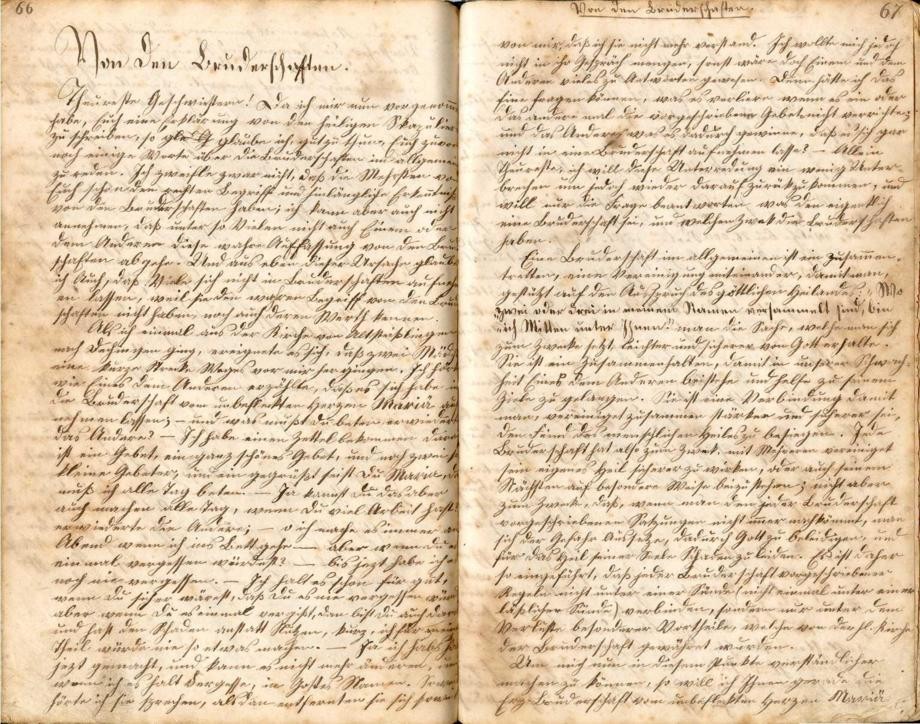 66
Von den Bruderschaften.
Theureste Geschwistern! Da ich mir nun vorgenom
habe, Euch eine Erklärung von den heiligen Skapulier
zu schreiben, so glaube ich, gut zu thun, Euch zuvor
noch einige Worte über die Bruderschaften im allgemein
zu reden. Ich zweifle zwar nicht, daß die Mehrsten von
Euch schon den rechten Begriff und hinlängliche Erkentniß
von den Bruderschaften haben; ich kann aber auch nicht
annehmen, daß unter so Vielen nicht auch Einem oder
dem Anderen diese wahre Auffassung von den Bru
schaften abgehe. Und aus eben dieser Ursache glaube
ich Auch, daß Viele sich nicht in Bruderschaften aufneh
en lassen, weil sie den waren Begriff von den Bru
schaften nicht haben, noch auch deren Werth kennen.
Als ich einmal aus der Kirche von
nach ging, ereignete es sich, daß zwei Mäd
eine kurze Streke Weges vor mir her gungen. Ich hör
wie Eines dem Anderen erzählte, daß es sich habe in
die Bruderschaft vom unbeflekten Herzen Mariä auf
nehmen lassen; – und was mußt Du beten erwiedert
das Andere? – Ich habe einen Zettel bekommen darau
ist ein Gebet, ein ganz schönes Gebet, und noch zwei
kleine Gebeter, und ein gegrüßt seist Du Maria, da
muß ich alle Tag beten. – Ja kannst Du das aber
auch machen alle Tag, wenn Du viel Arbeit hast?
erwiederte die Andere; – o ich mache es immer am
Abend wenn ich ins Bett gehe – aber wenn Du es
einmal vergessen würdest? – bis jezt habe ich es
noch nie vergessen. – Ich halt es schon für gut,
wenn Du sicher wärest, daß Du es nie vergessen wür
aber wenn Du es einmal vergißt, den bist Du auch
und hast den Schaden anstatt Nutzen, kurz, ich für mein
Theil würde nie so etwas machen. – Ja ich habs
jezt gemacht, und kann es nicht mehr ändern, und
wenn ich es halt vergesse, in Gottes Namen. Soweit
hörte ich sie sprechen, alsdan entfernten sie sich so
Von den Bruderschaften.
67
von mir, daß ich sie nicht mehr verstand. Ich wollte mich jedoch
nicht in ihr Gespräch mengen, sonst wäre doch Einem und dem
Anderen vieles zu Antworten gewesen. Denn hätte ich das
Eine fragen können, was es verliere wenn es ein oder
das andere mal die vorgeschriebenen Gebete nicht verrichte;
und das Andere, was es dadurch gewinne, daß es sich gar
nicht in eine Bruderschaft aufnehmen lasse? – Allein
Theureste, ich will diese Unterredung ein wenig unter
brechen um jedoch wieder darauf zurükzukommen, und
will nur die Frage beantworten was den eigentlich
eine Bruderschaft sei, und welchen Zwek die Bruderschaften
haben.
Eine Bruderschaft im allgemeinen ist ein zusamen-
tretten, eine Vereinigung miteinander, damit man,
gestüzt auf den Ausspruch des göttlichen Heilandes: „Wo
zwei oder drei in meinem Namen versammelt sind, bin
ich Mitten unter Ihnen" man die Sache, welche man sich
zum Zweke sezt, leichter und sicherer von Gott erhalte.
Sie ist ein Zusammenhalten, damit in unserer Schwach-
heit Eines dem Anderen beistehe und helfe zu seinem
Ziele zu gelangen. Sie ist eine Verbindung damit
man, vereiniget zusammen stärker und sicherer sei,
den Feind des menschlichen Heiles zu besiegen. Jede
Bruderschaft hat also zum Zwek, mit Mehreren vereiniget
sein eigenes Heil sicherer zu wirken, oder auch seinem
Nächsten auf besondere Weise beizustehen; nicht aber
zum Zweke, daß, wenn man den jeder Bruderschaft
vorgeschriebenen Satzungen nicht imer nachkommt, man
sich der Gefahr Aussetze, dadurch Gott zu beleidigen, und
für das Heil seiner Seele Schaden zu leiden. Es ist daher
so eingeführt, daß jeder Bruderschaft vorgeschriebene
Regeln nicht unter einer Sünde (nicht einmal unter einer
läßlichen Sünde) verbinden, sondern nur unter dem
Verluste besonderer Vortheile, welche von der hl. Kirche
der Bruderschaft gewährt wurden.
Um mich nun in diesem Punkte verständlicher
machen zu können, so will ich Ihnen gerade die
Erz Bruderschaft vom unbeflekten Herzen Mariä